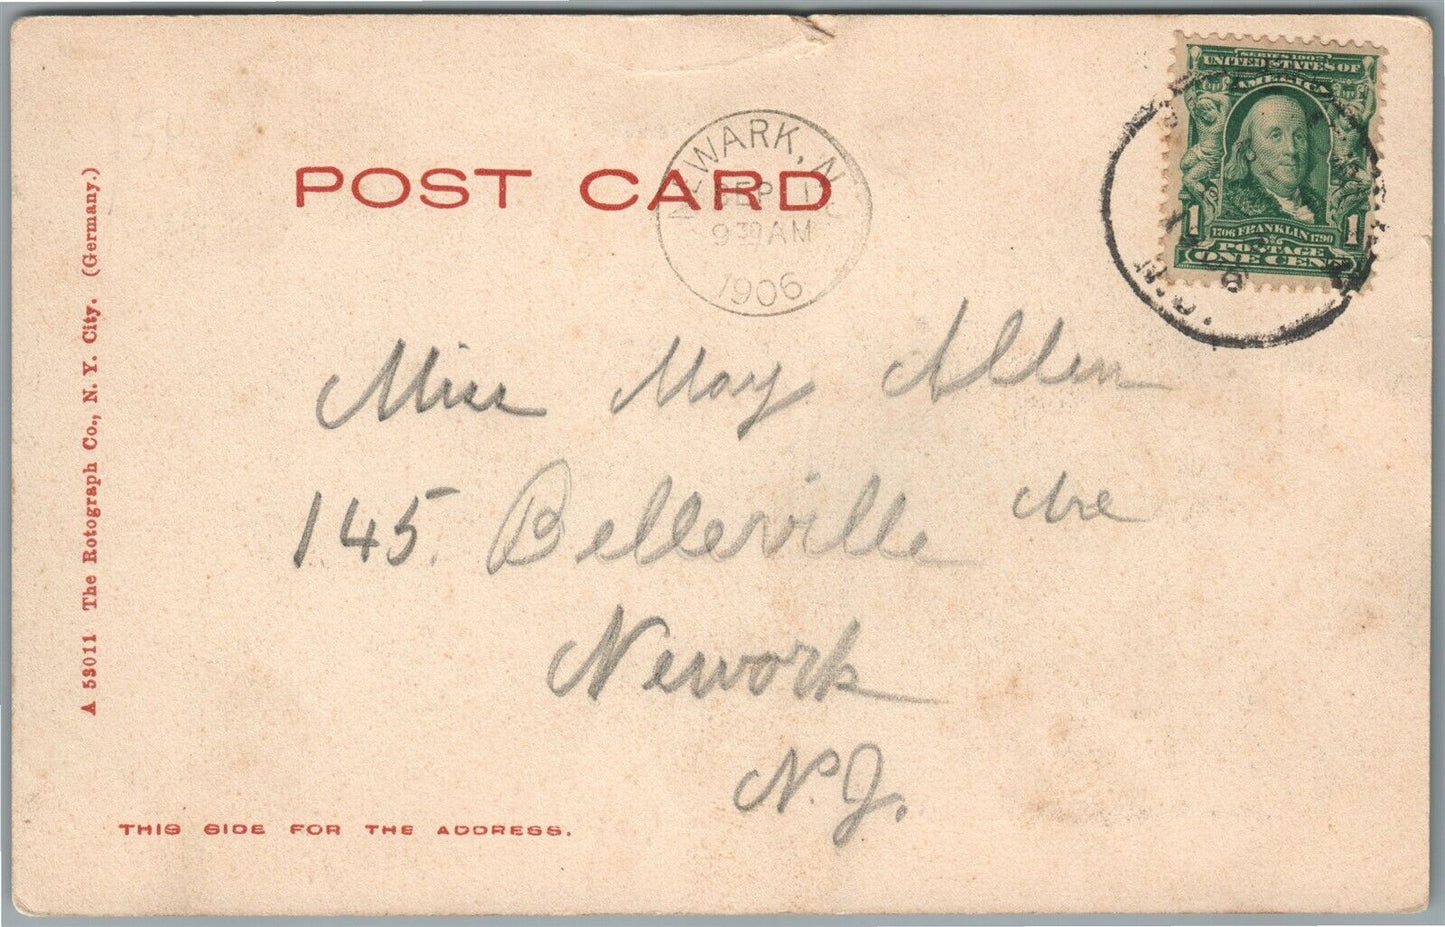 SERIES 1902
UNITED STATES OF
AMERICA
1706 FRANKLIN 1790
1 1
POSTAGE
ONE CENT
NEWARK, N.J.
SEP
9 30 AM
1906
POST CARD
Miss May Allen
145 Belleville Ave
Newark
N.J.
THIS SIDE FOR THE ADDRESS.
A 58011 The Rotograph Co., N. Y. City. (Germany.)